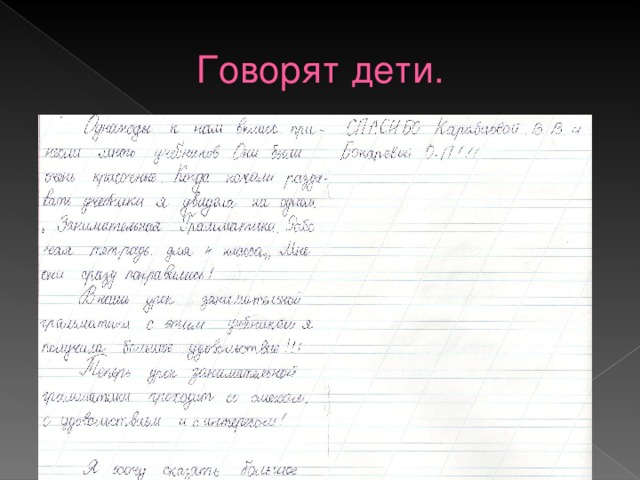 Говорят дети.
Однажды к нам в класс при-
несли много учебников Они были
очень красочные. Когда начали разда-
вать учебники я увидела на одном
„Занимательная Грамматика. Рабо
чая тетрадь для 4 класса„ Мне
они сразу понравились!
В наш урок занимательной
грамматики с этим учебником я
получила большое удовольствие!!!
Теперь урок занимательной
грамматики проходит со смехом,
с удовольствием и с интересом!
Я хочу сказать большое
СПАСИБО В В и
О.П!!!